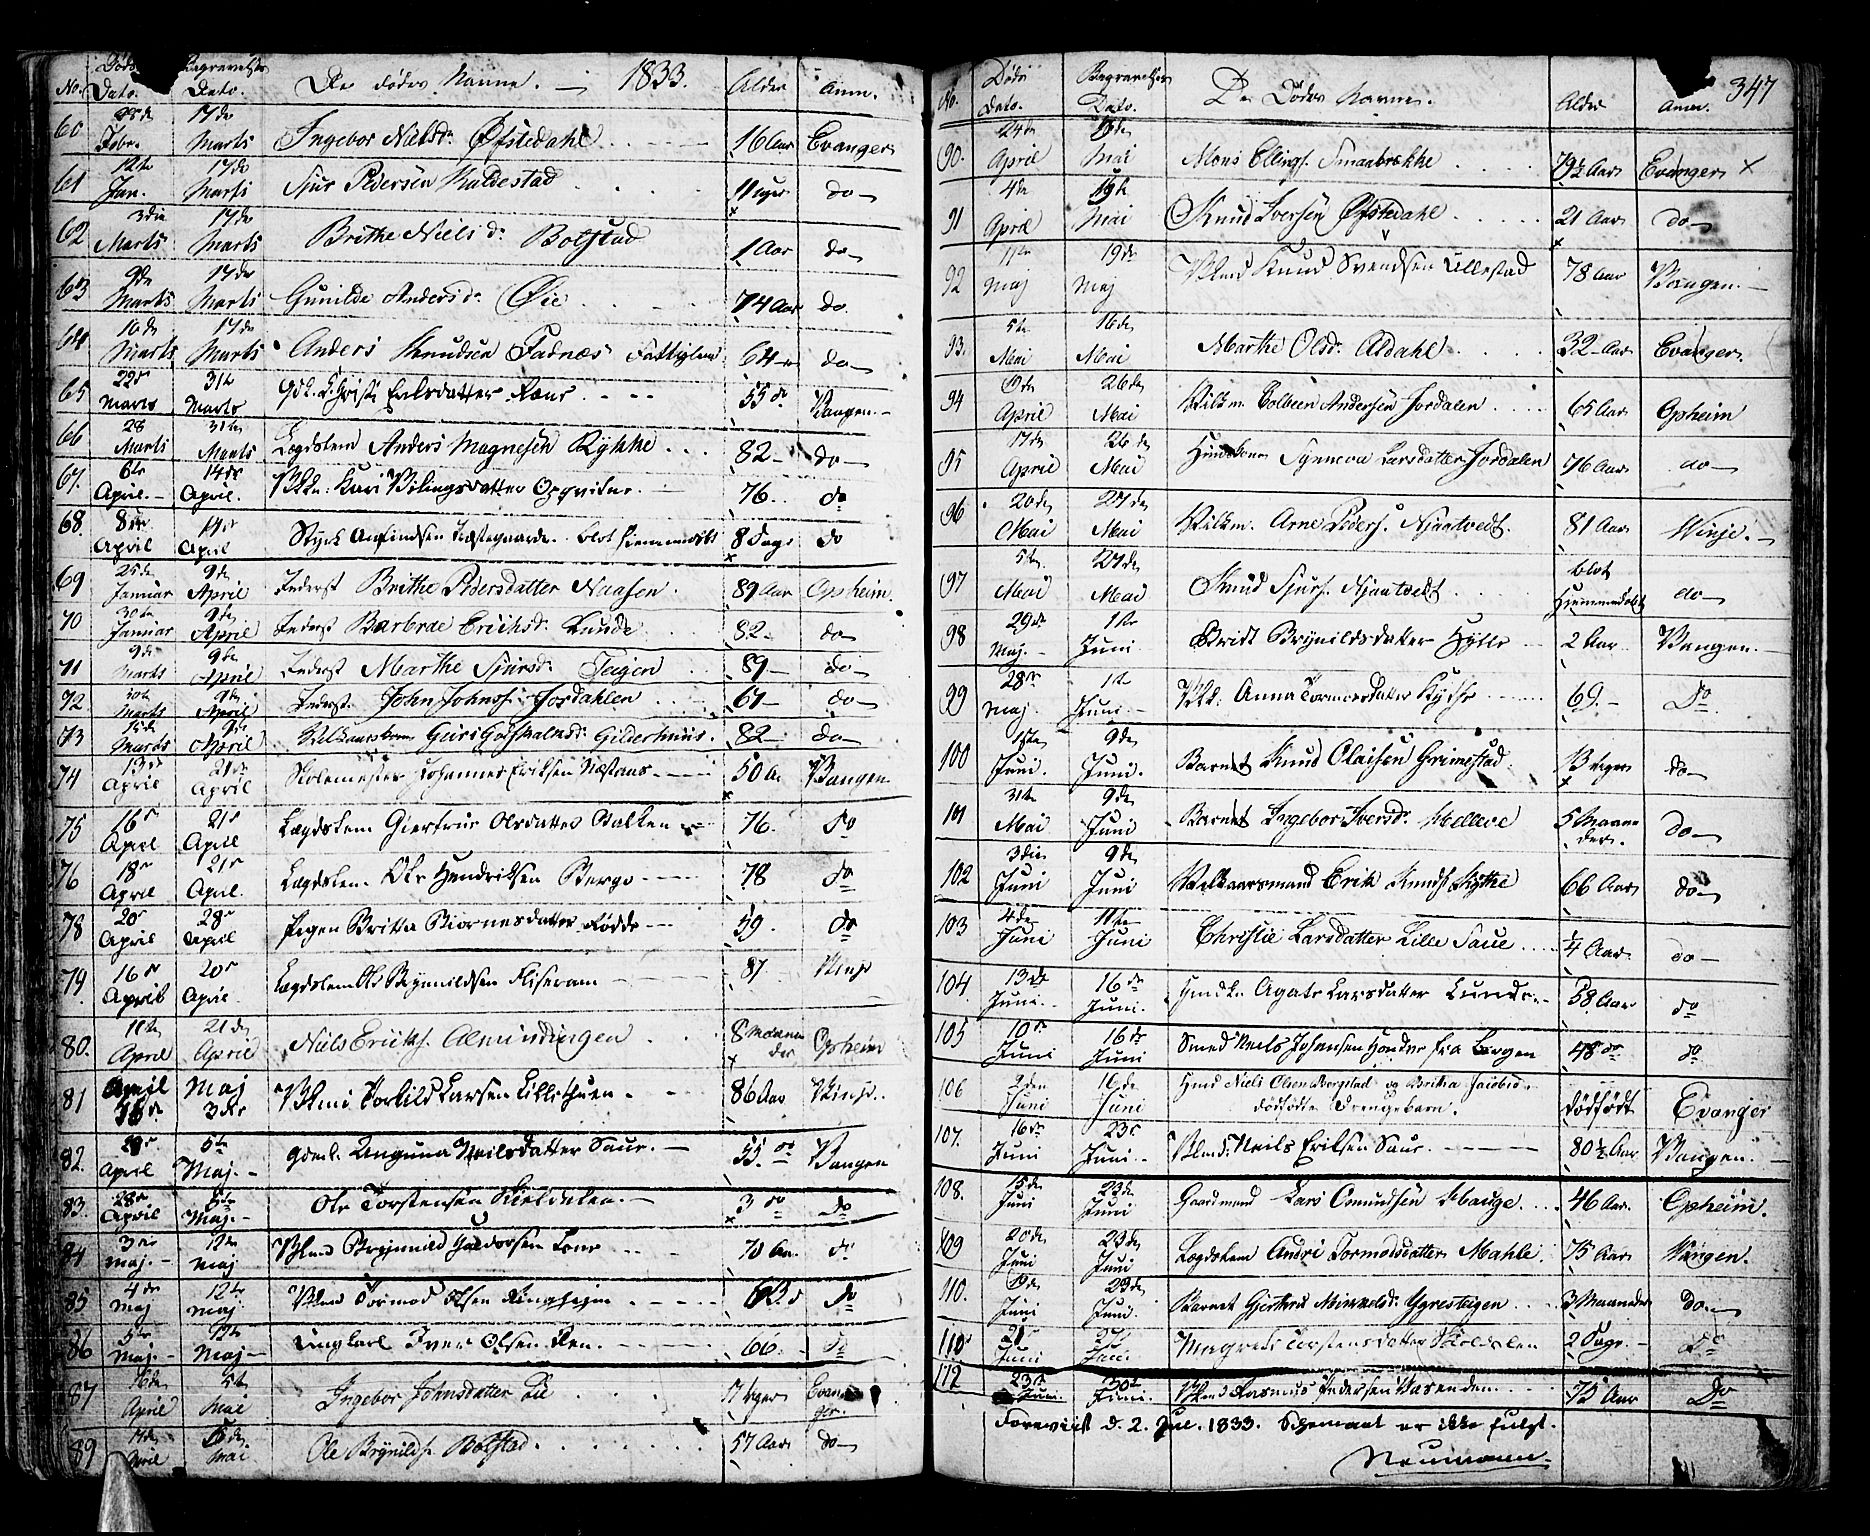 No. Døds Dato. Begravelses Dato. De dødes Navne. — 1833. Alder Anm.
60 Febr. 17de Marts Ingebor Nielsdr. Øfstedahl 16 Aar Evanger
61 12te Jan. 17de Marts Sjur Pedersen Kaldestad 11 uger do
62 3die Marts 17de Marts Brithe Nielsdr. Bolstad 1 Aar do
63 9de Marts 17de Marts Gunilde Andersdr. Øie 74 Aar do.
64 10de Marts 17de Marts Anders Knudsen Fadnæs Fattiglem 64 do
65 22de Marts 31te Marts Gdk. Christi Erlsdatter 55 do Vangen.
66 28 Marts 31te Marts Lægdslem Anders Magnesen Rykke 82 do
67. 6te April. 14de April. Vkk. Kari 76. do
68. 8de April 14de April Styrk blot hiemmedøbt 8 Dage do
69 25de Januar 9de April Inderst Brithe Pedersdatter Naasen 89 Aar Opheim.
70 30te Januar 9de April Inderst Barbrae Erichsdr. Lunde 82 do
71 9de Marts 9de April Inderst Marthe Sjursdr. 89 do
72. 30te Marts 9de April Inderst. John Johnss. Jordahlen 67 do
73 15de Marts 9de April Geiri Gilderhuus. 82 do
74 13de April 21de April Skolemester Johannes Eriksen 50 A. Vangen
75 16de April 21de April Lægdslem Giertrue Olsdatter 76. do
76 18de April 21de April. Lægdslem. Ole Hendriksen Berge 78 do
78 20de April 28de April Pigen Britta Biornesdatter Rødde 59. do
79. 16de April 20de April. Lægdslem Ole Brynildsen 87. Vinje
80. 11te April 21de April Niels Eriks. Almindingen 8 Maaneder Opheim
81 April 15de Maj 3die Vkmd Torkild Larsen Lillethuen. 86 Aar Vinje.
82. April 5te Maj. Gdml. Angunna Neilsdatter Saue. 55. do Vangen
83. 28de April 5te Maj. Ole Torstensen Skieldalen. 3 do do
84 3die Maj. 12te Maj Vkmd Brynnild Haldorsen Lone 70 Aar do
85 4de Maj 12te Maj. Vkmd Tormod Olsen Ringheim 63. do
86 5te Maj. 12te Maj Ungkarl Iver Olsen Ren. 66. do
87 16de April 5te Mai Ingebor Johnsdatter Lie 17 uger Evanger.
89 7de April 5te Mai Ole Brynilds. Bolstad 57 Aar do
No. Døds Dato. Begravelses Dato. De Dødes Navne. Alder Anm. 347
90. 24de April 19de Mai Mons Ellings. Smaabrekke 79½ Aar Evanger. ×
91 4de April 19de Mai Knud Iversen Øfstedahl 21 Aar do
92 11te Maj 19de Maj Vkmd Knud Svendsen Ullestad 78 Aar Vangen.
93. 5te Mai 16de Mai Marthe Olsdr. Aldahl 32 Aar Evanger.
94 19de April 26de Mai Vilkm. Colbeen Andersen Jordalen 65 Aar Opheim
95 17de April 26de Mai Huuskone Synneva Larsdatter Jordalen 76 Aar do
96 20de Mai 27de Mai Vilkm. Arne Peders. Njaatvedt. 81 Aar Winje.
97 5te Mai 27de Mai Knud Sjurs. Njaatvedt blot hjemmedøbt do
98 29de Maj. 1te Juni Bridt Brynildsdatter Hylle 2 Aar Vangen.
99 28de Maj. 1te Juni. Vkk. Anna Tormodsdatter Kythe 69. do
100 1ste Juni. 9de Juni. Barnet Knud Olaisen Grimestad 3 uger do
101 31te Mai 9de Juni Barnet Ingebor Iversdr. Melleve 5 Maaneder. do
102 3die Juni 9de Juni Velkaarsmand Erik Knuds. Kythe 66 Aar do
103 4de Juni 11te Juni Christie Larsdatter Lille Saue ¼ Aar. do
104. 13de Juni. 16de Juni. Hmdk. Agate Larsdatter Lunde. 58 Aar do
105 10de Juni 16de Juni Smed Neils Johansen Honder fra Bergen 48 do do
106 2den Juni 16de Juni Hmd Niels Olsen Borgstad og Britha Jacobsd. dødfødte Drengebarn. dødfødt Evanger
107. 16de Juni 23de Juni. Vkmd. Neils Eriksen Saue. 80½ Aar Vangen.
108. 15de Juni 23de Juni Gaardmand Lars Omundsen Hauge. 46 Aar. Opheim.
109 20de Juni 23de Juni Lægdslem Andri Tormodsdatter Mahle 75 Aar Vangen.
110. 19de Juni 23de Juni. Barnet Gjertrud Mikkelsdr. Ygresteigen 3 Maaneder do
110 21de Juni 27de Juni Magrete Torstensdatter 2 Dage. do
112 23de Juni. 30te Juni. Vkmd Rasmus Pedersen 75 Aar do
Foreviist d. 2. Jul. 1833. Schemaet er ikke fulgt.
Neumann.